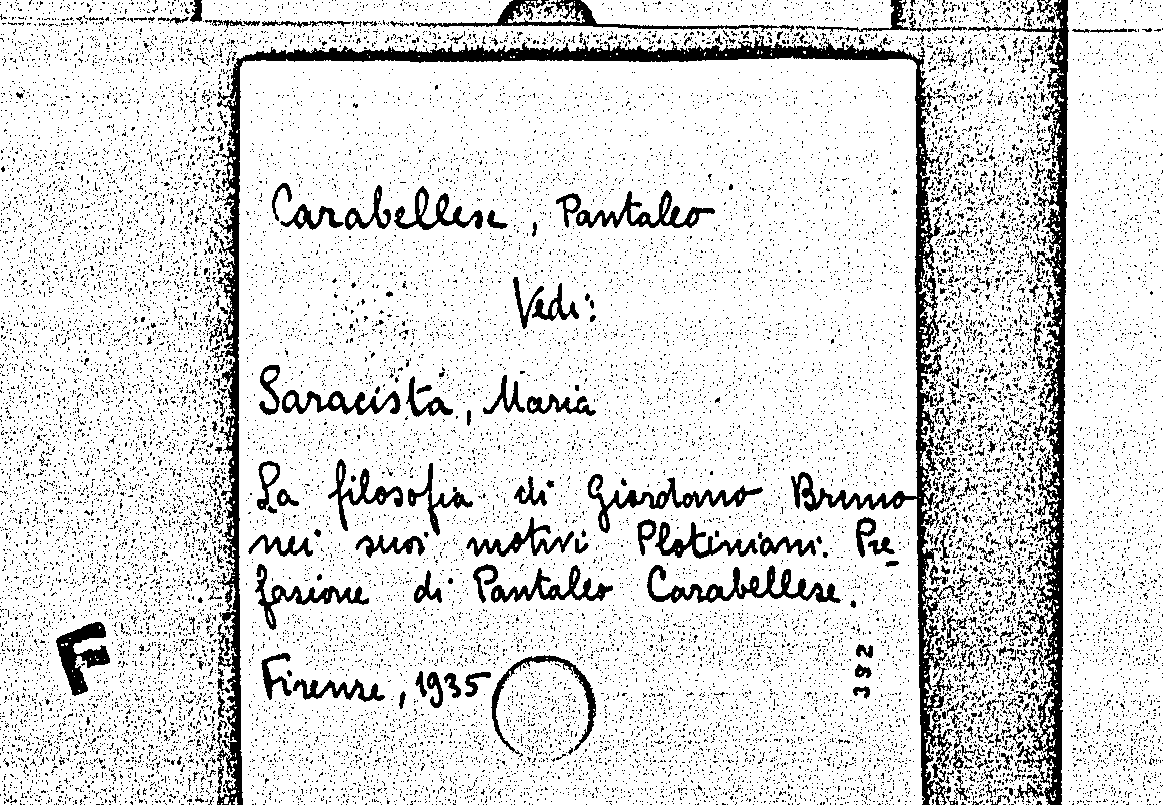 Carabellese, Pantaleo
Vedi:
Saracista, Maria
La filosofia di Giordano Bruno
nei suoi motivi Plotiniani. Pre
fazione di Pantaleo Carabellese.
Firenze, 1935
392
F